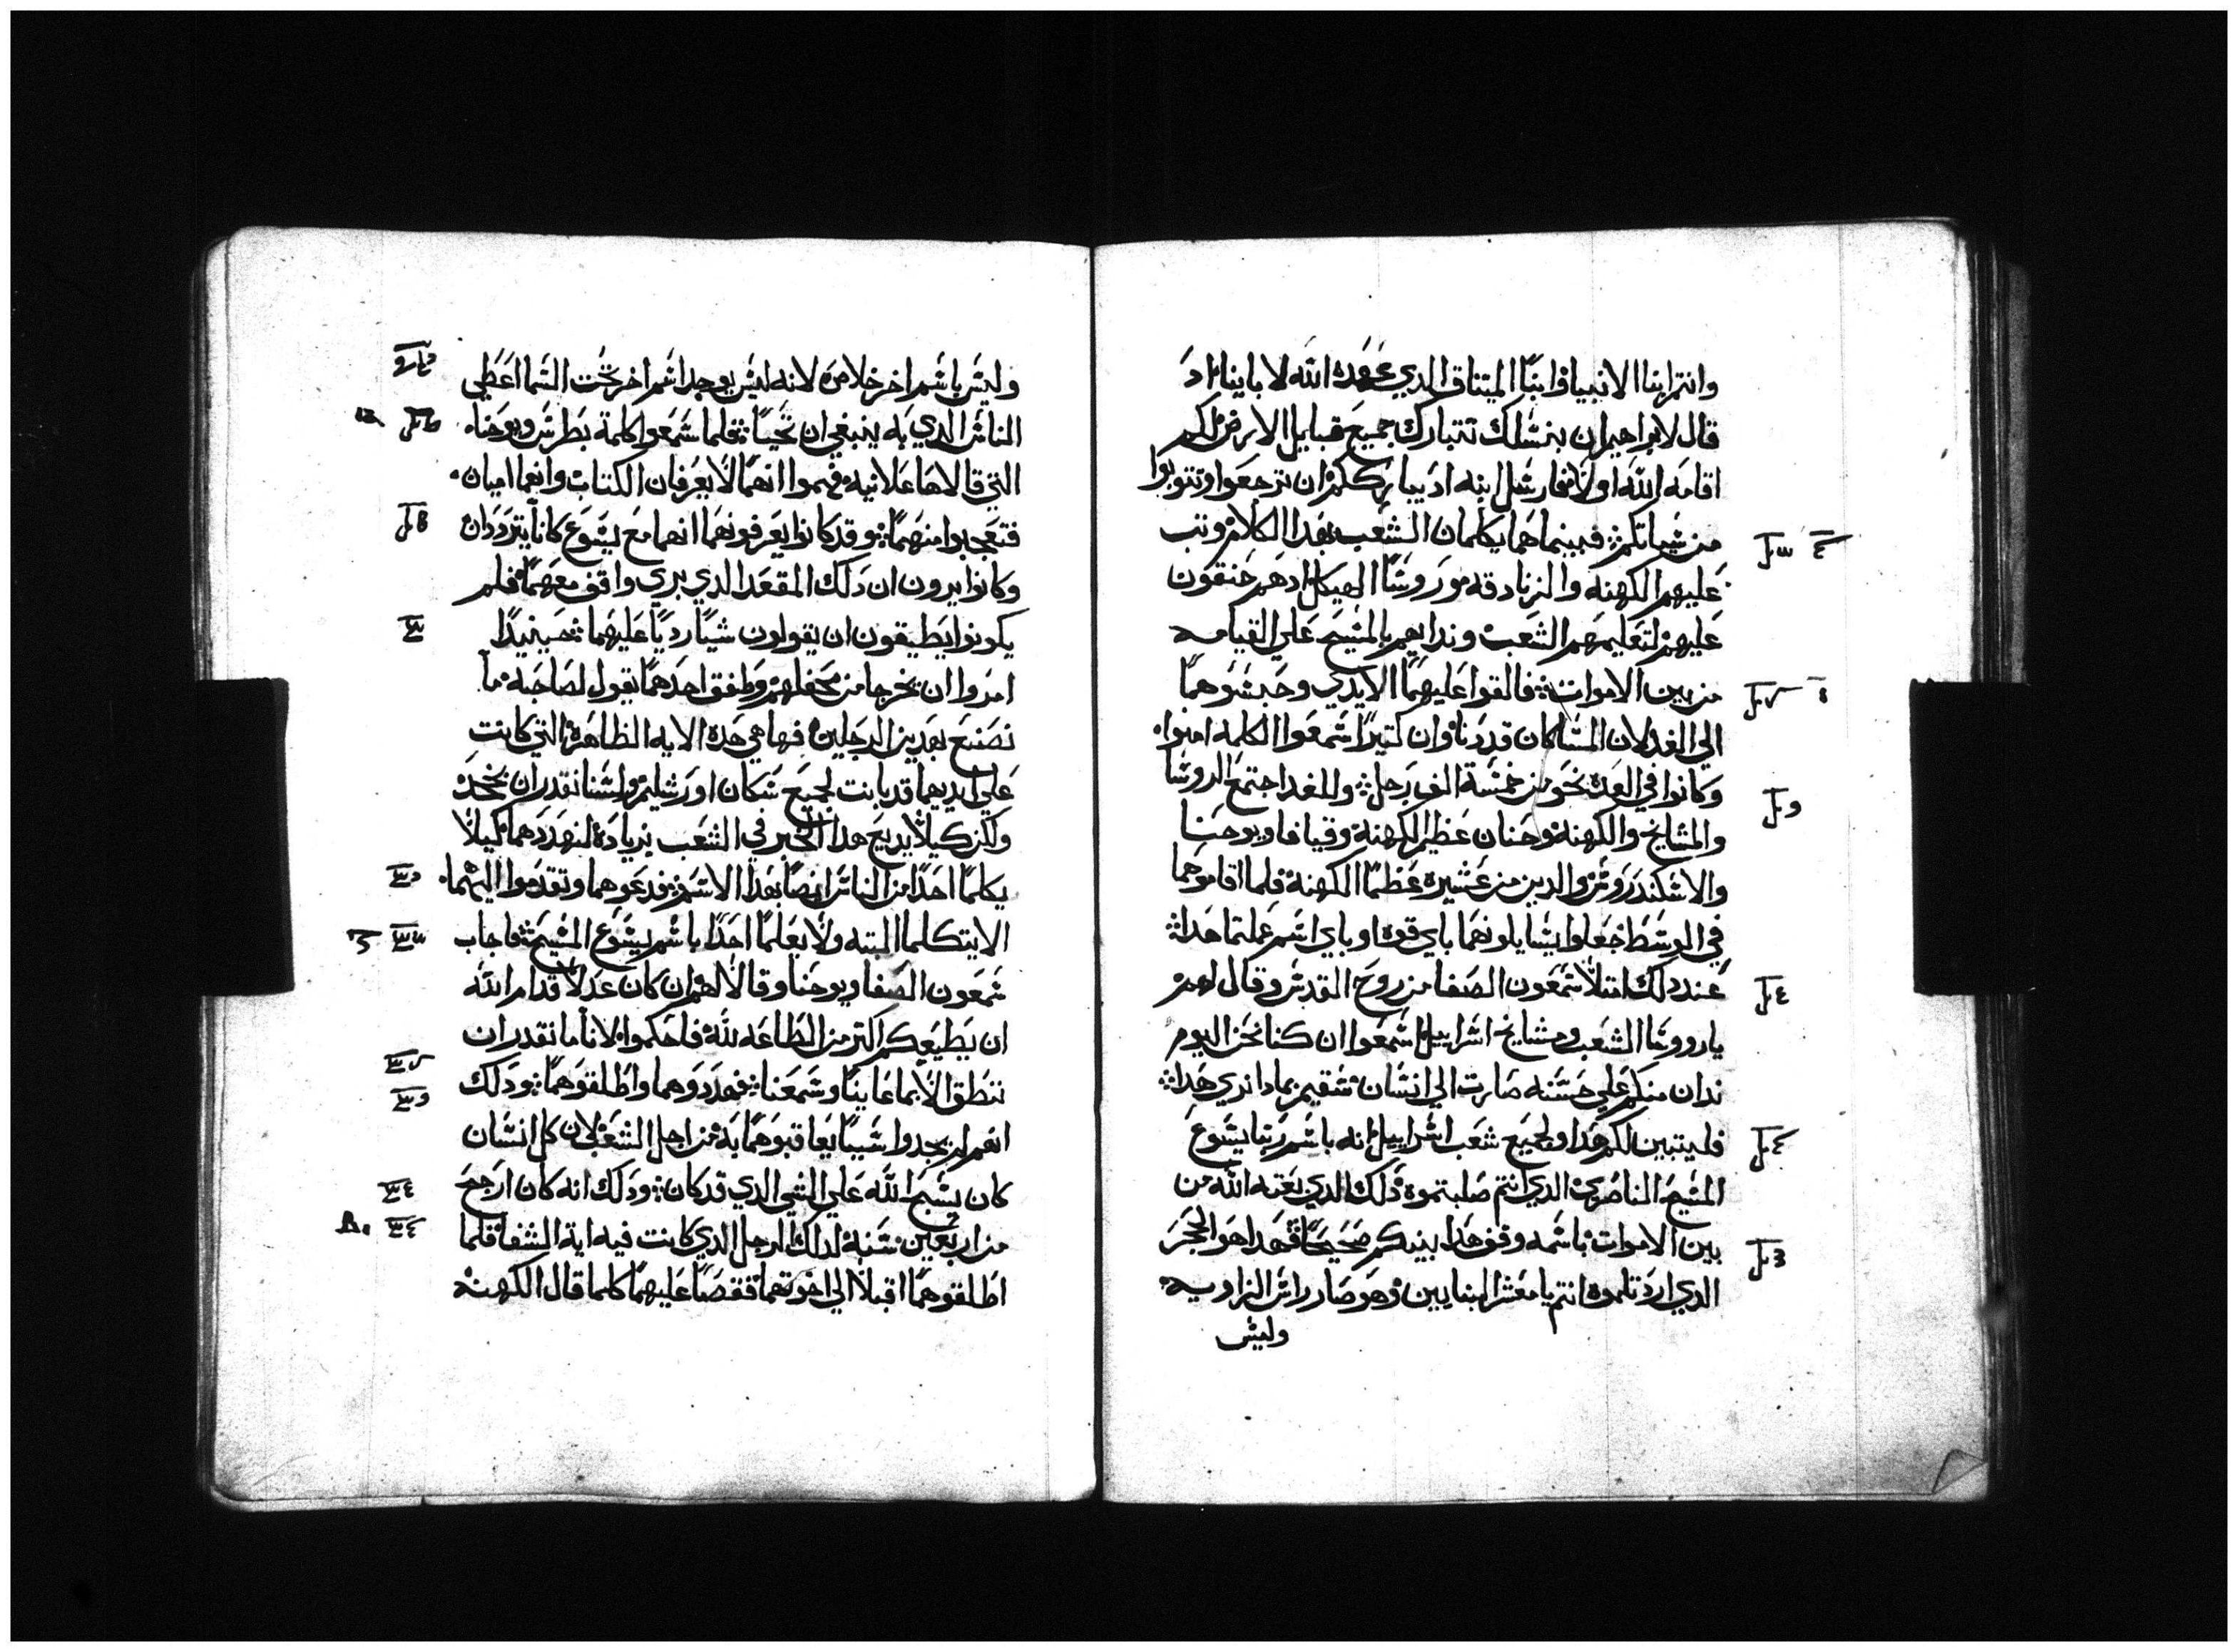 وانتم ابنا الانبيا وابنا الميتاق الدي عقده الله لاباينا اد
قال لابراهيم ان بنسلك تتبارك جميع قبايل الارض لكم
اقامه الله اولا فارسل ابنه اد يبارككم ان ترجعوا وتتوبوا
من سياتكم فبينما هما يكلمان الشعب بهدا الكلام وتب
عليهم الكهنه والزنادقه وروسا الهيكل ادهم حنقون
عليهم لتعليمهم الشعب وندايهم بالمسيح علي القيامه
من بين الاموات فالقوا عليهما الايدي وحبسوهما
الي الغد لان المسا كان قد دنا وان كتيرا سمعوا الكلمه امنوا
وكانوا في العدة نحو من خمسة الف رجل وللغد اجتمع الروسا
والمشايخ والكهنة وحنان عظيم الكهنة وقيافا ويوحنا
والاسكندروس والدين من عشيرة عظما الكهنة فلما اقاموهما
في الوسط جعلوا يسايلونهما باي قوه او باي اسم عملتما هدا
عند دلك امتلا شمعون الصفا من روح القدس وقال لهم
يا روسا الشعب ومشايخ اسراييل اسمعوا ان كنا نحن اليوم
ندان منكم علي حسنه صارت الي انسان سقيم بمادا بري هدا
فليتبين لكم هدا ولجميع شعب اسراييل انه باسم ربنا يسوع
المسيح الناصري الدي انتم صلبتموه دلك الدي بعته الله من
بين الاموات باسمه وقف هدا بينكم صحيحا فهدا هو الحجر
الدي اردلتموه انتم يا معشر البنايين وهو صار راس الزاويه
وليس
وليس باسم اخر خلاص لانه ليس يوجد اسم اخر تحت السما اعطي
الناس الدي به ينبغي ان نحيا فلما سمعوا كلمة بطرس ويوحنا
التي قالاها علانيه فهموا انهما لا يعرفان الكتاب وانهما اميان
فتعجبوا منهما وقد كانوا يعرفونهما انهما مع يسوع كانا يترددان
وكانوا يرون ان دلك المقعد الدي بري واقف معهما فلم
يكونوا يطيقون ان يقولون شيا رديا عليهما حينيدا
امروا ان يخرجا من محفلهم وطفق احدهما يقول لصاحبه ما
نصنع بهدين الرجلين فها هي هده الايه الظاهرة التي كانت
علي ايديهما قد بانت لجميع سكان اورشليم ولسنا نقدر ان نجحد
ولكن كيلا يديع هدا الخبر في الشعب بزيادة لنهددهما كيلا
يكلما احدا من الناس ايضا بهدا الاسم فدعوهما وتقدموا اليهما
الا يتكلما البته ولا يعلما احدا باسم يسوع المسيح فاجاب
شمعون الصفا ويوحنا وقالا لهم ان كان عدلا قدام الله
ان نطيعكم اكتر من الطاعه لله فاحكموا لانا ما نقدر ان
ننطق الا بما عاينا وسمعنا فهددوهما واطلقوهما ودلك
انهم لم يجدوا شيا يعاقبوهما به من اجل الشعب لان كل انسان
كان يسبح الله علي الشي الدي قد كان ودلك انه كان ارجح
من اربعين سنة لدلك الرجل الدي كانت فيه اية الشفا فلما
اطلقوهما اقبلا الي اخوتهما فقصا عليهما كلما قال الكهنه